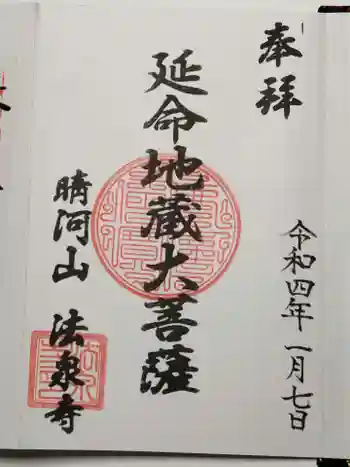 奉拝
令和四年一月七日
延命地蔵大菩薩
晴河山 法泉寺